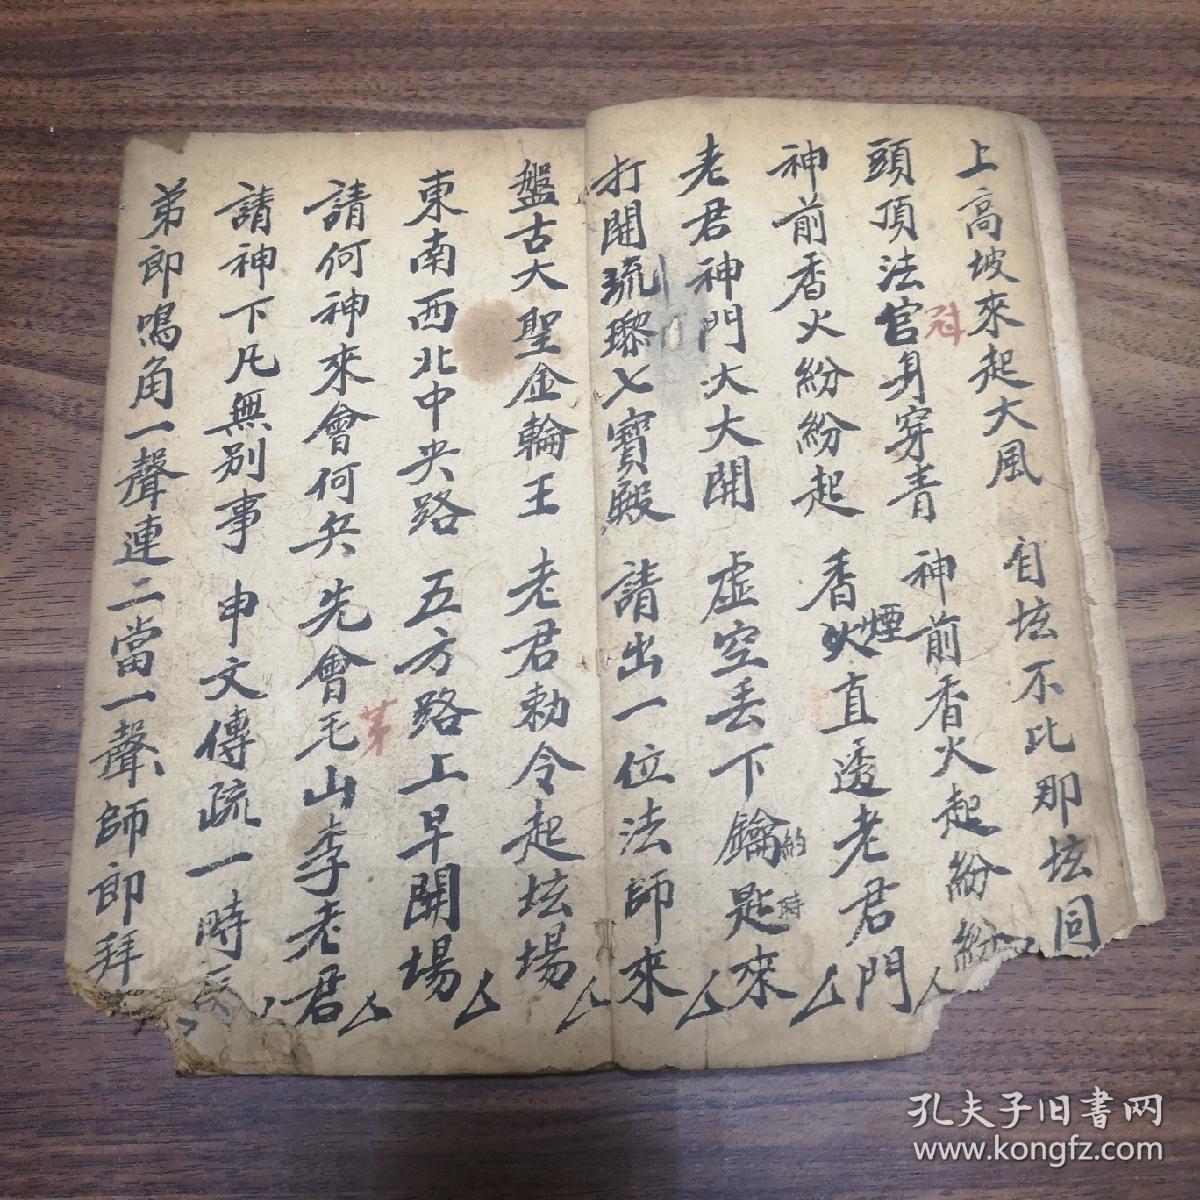 上高坡來起大風 自坛不比那坛同
頭頂法官身穿青 神前香火起紛紛
冠
神前香火紛紛起 香火直透老君門
煙
老君神門大大開 虛空丢下鑰匙來
約
時
打開琉璨七寶殿 請出一位法師來
盤古大聖金輪王 老君勅令起坛場
東南西北中央路 五方路上早開場
請何神來會何兵 先會毛山李老君
茅
請神下凡無別事 申文傳疏一時
弟郎鳴角一聲連二當一聲師郎拜
孔夫子旧書网
www.kongfz.com